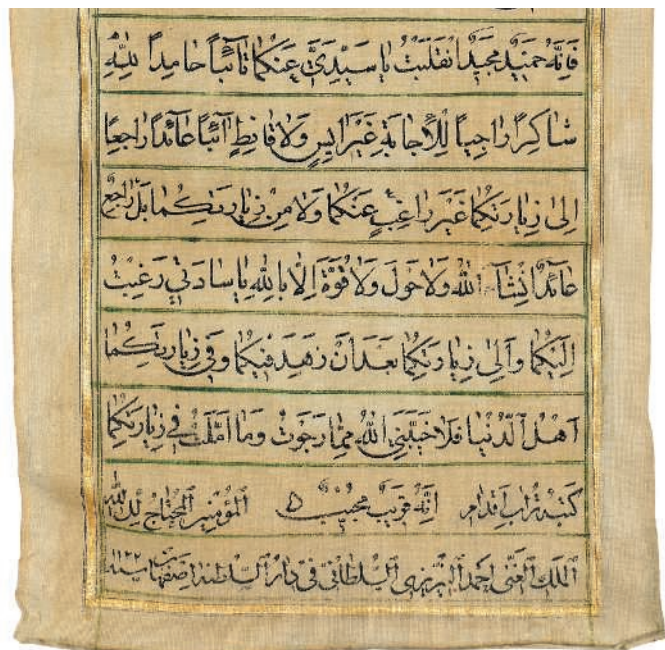 فَاِنَّهُ حَمِيدٌ مَجِيدٌ اِنْقَلَبْتُ يَا سَيِّدَيَّ عَنْكُمَا تَائِبًا حَامِدًا لِلّٰهِ
شَاكِرًا رَاجِيًا لِلْاِجَابَةِ غَيْرَ اٰيِسٍ وَلَا قَانِطٍ اٰئِبًا عَائِدًا رَاجِعًا
اِلٰى زِيَارَتِكُمَا غَيْرَ رَاغِبٍ عَنْكُمَا وَلَا مِنْ زِيَارَتِكُمَا بَلْ رَاجِعٌ
عَائِدٌ اِنْشَاءَ اللهُ وَلَا حَوْلَ وَلَا قُوَّةَ اِلَّا بِاللهِ يَا سَادَتِي رَغِبْتُ
اِلَيْكُمَا وَاِلٰى زِيَارَتِكُمَا بَعْدَ اَنْ زَهِدَ فِيكُمَا وَفِي زِيَارَتِكُمَا
اَهْلُ الدُّنْيَا فَلَا خَيَّبَنِيَ اللهُ مِمَّا رَجَوْتُ وَمَا اَمَّلْتُ فِي زِيَارَتِكُمَا
كَتَبَهُ تُرَابُ اَقْدَامِ اِنَّهُ قَرِيبٌ مُجِيبٌ الْمُؤْمِنِينَ الْمُحْتَاجُ اِلَى اللهِ
الْمَلِكِ الْغَنِيِّ اَحْمَدُ النَّيْرِيزِيُّ السُّلْطَانِيُّ فِي دَارِ السَّلْطَنَةِ اِصْفَهَانَ سنة ١١٢٢